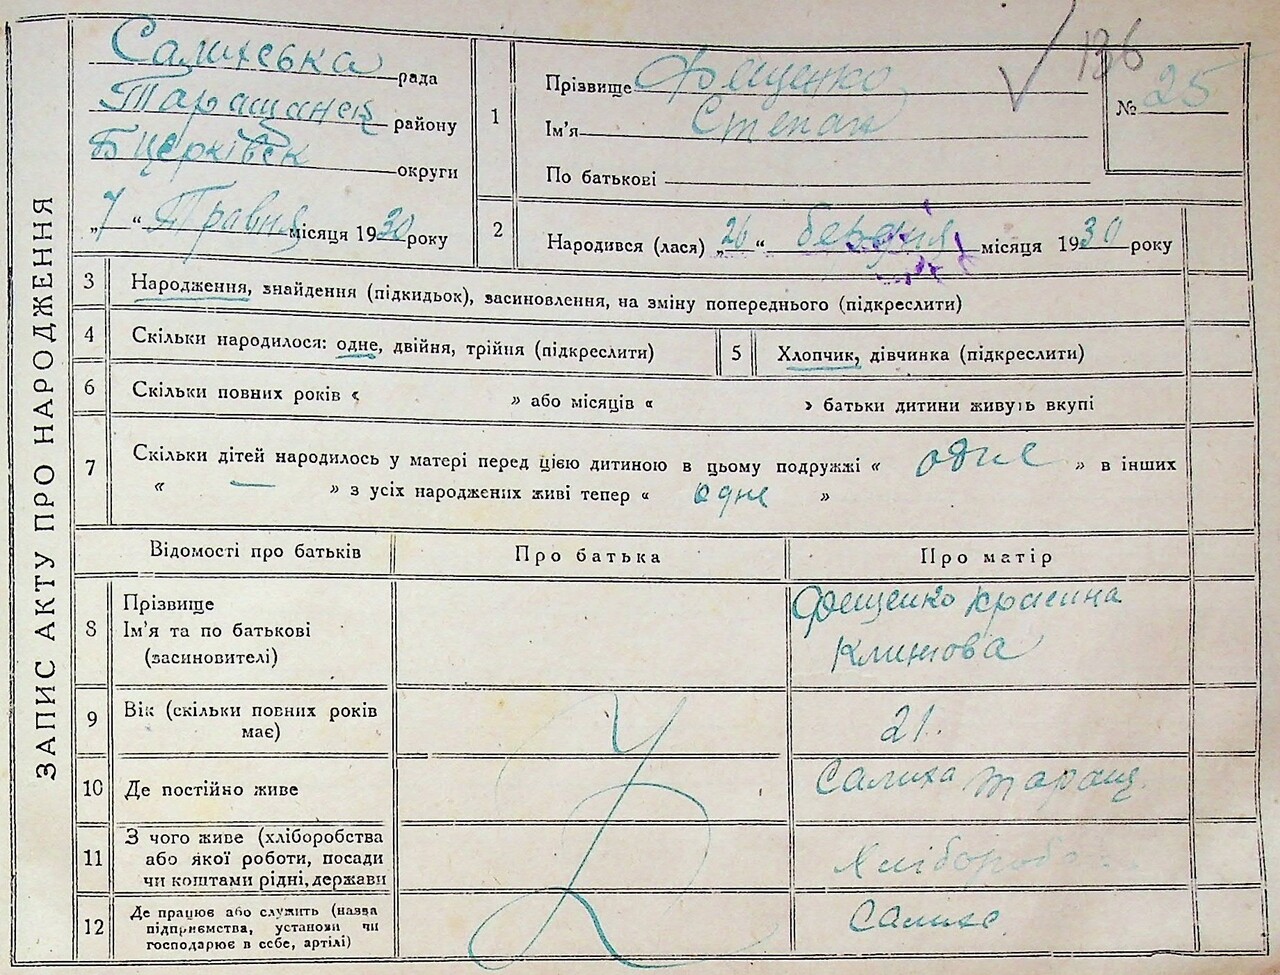 ЗАПИС АКТУ ПРО НАРОДЖЕННЯ
136
Салихська рада
Таращанск району
Бцерківск округи
„7“ Травня місяця 1930 року
1
Прізвище Фещенко
Ім'я Степан
По батькові
№ 25
2
Народився (лася) „26“ березня місяця 1930 року
3 Народження, знайдення (підкидьок), засиновлення, на зміну попереднього (підкреслити)
4 Скільки народилося: одне, двійня, трійня (підкреслити)
5 Хлопчик, дівчинка (підкреслити)
6 Скільки повних років « » або місяців « » батьки дитини живуть вкупі
7 Скільки дітей народилось у матері перед цією дитиною в цьому подружжі « одне » в інших
« — » з усіх народжених живі тепер « одне »
Відомості про батьків Про батька Про матір
8 Прізвище
Ім'я та по батькові
(засиновителі)
Фещенко
Климова
9 Вік (скільки повних років
має)
21.
10 Де постійно живе
Салиха Таращ.
11 З чого живе (хліборобства
або якої роботи, посади
чи коштами рідні, держави
Хлібороб
12 Де працює або служить (назва
підприємства, установи чи
господарює в себе, артілі)
Салихе